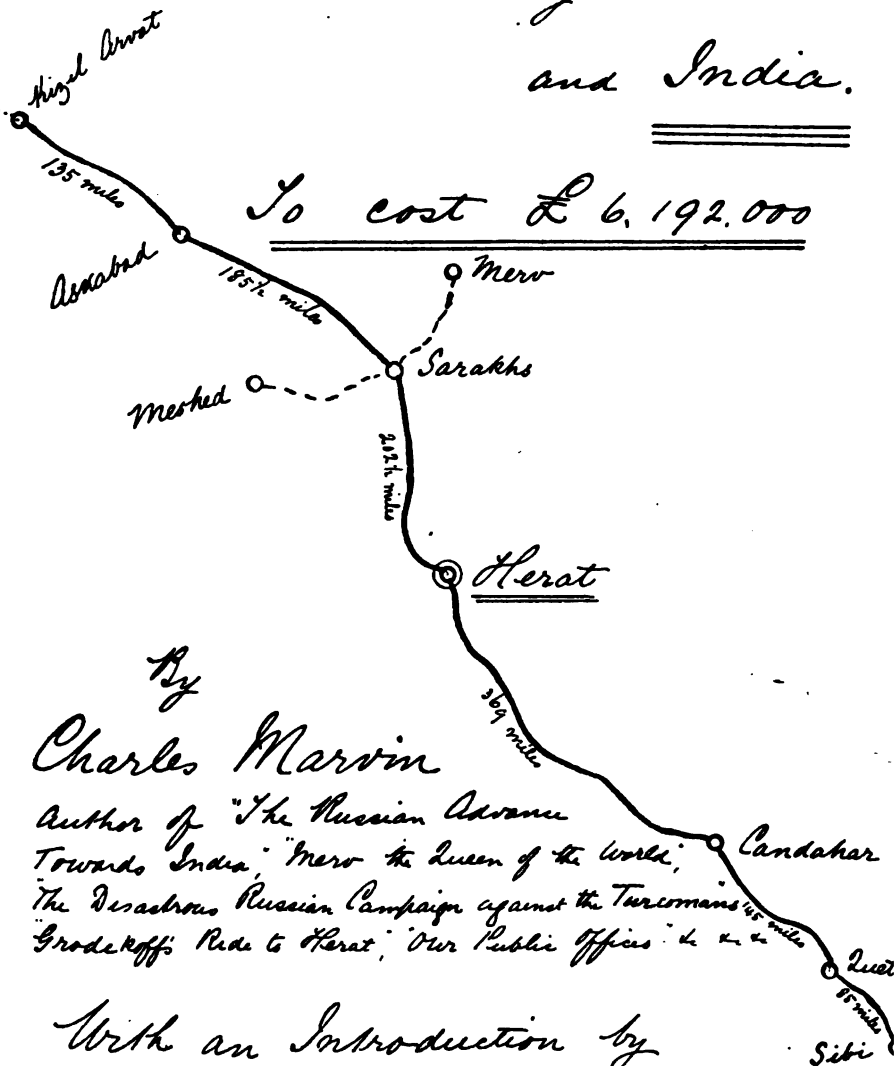 Kizil Arvat
and India.
135 miles
To cost £ 6.192.000
Askabad
185½ miles
Merv
Sarakhs
Meshed
202½ miles
Herat
By
369 miles
Charles Marvin
Author of "The Russian Advance
Towards India", "Merv the Queen of the World",
"The Disastrous Russian Campaign against the Turcomans"
"Grodekoff's Ride to Herat", "Our Public Offices" &c &c &c
Candahar
145 miles
Quet
85 miles
With an Introduction by
Sibi